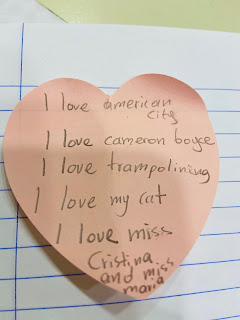 I love american
city
I love cameron boyce
I love trampolining
I love my cat
I love miss
Cristina
and miss
maria